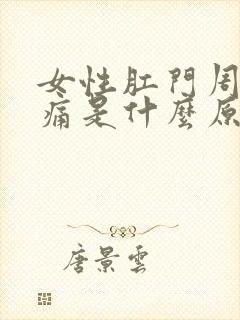 女性肛門周
痛是什麼原
唐景雲